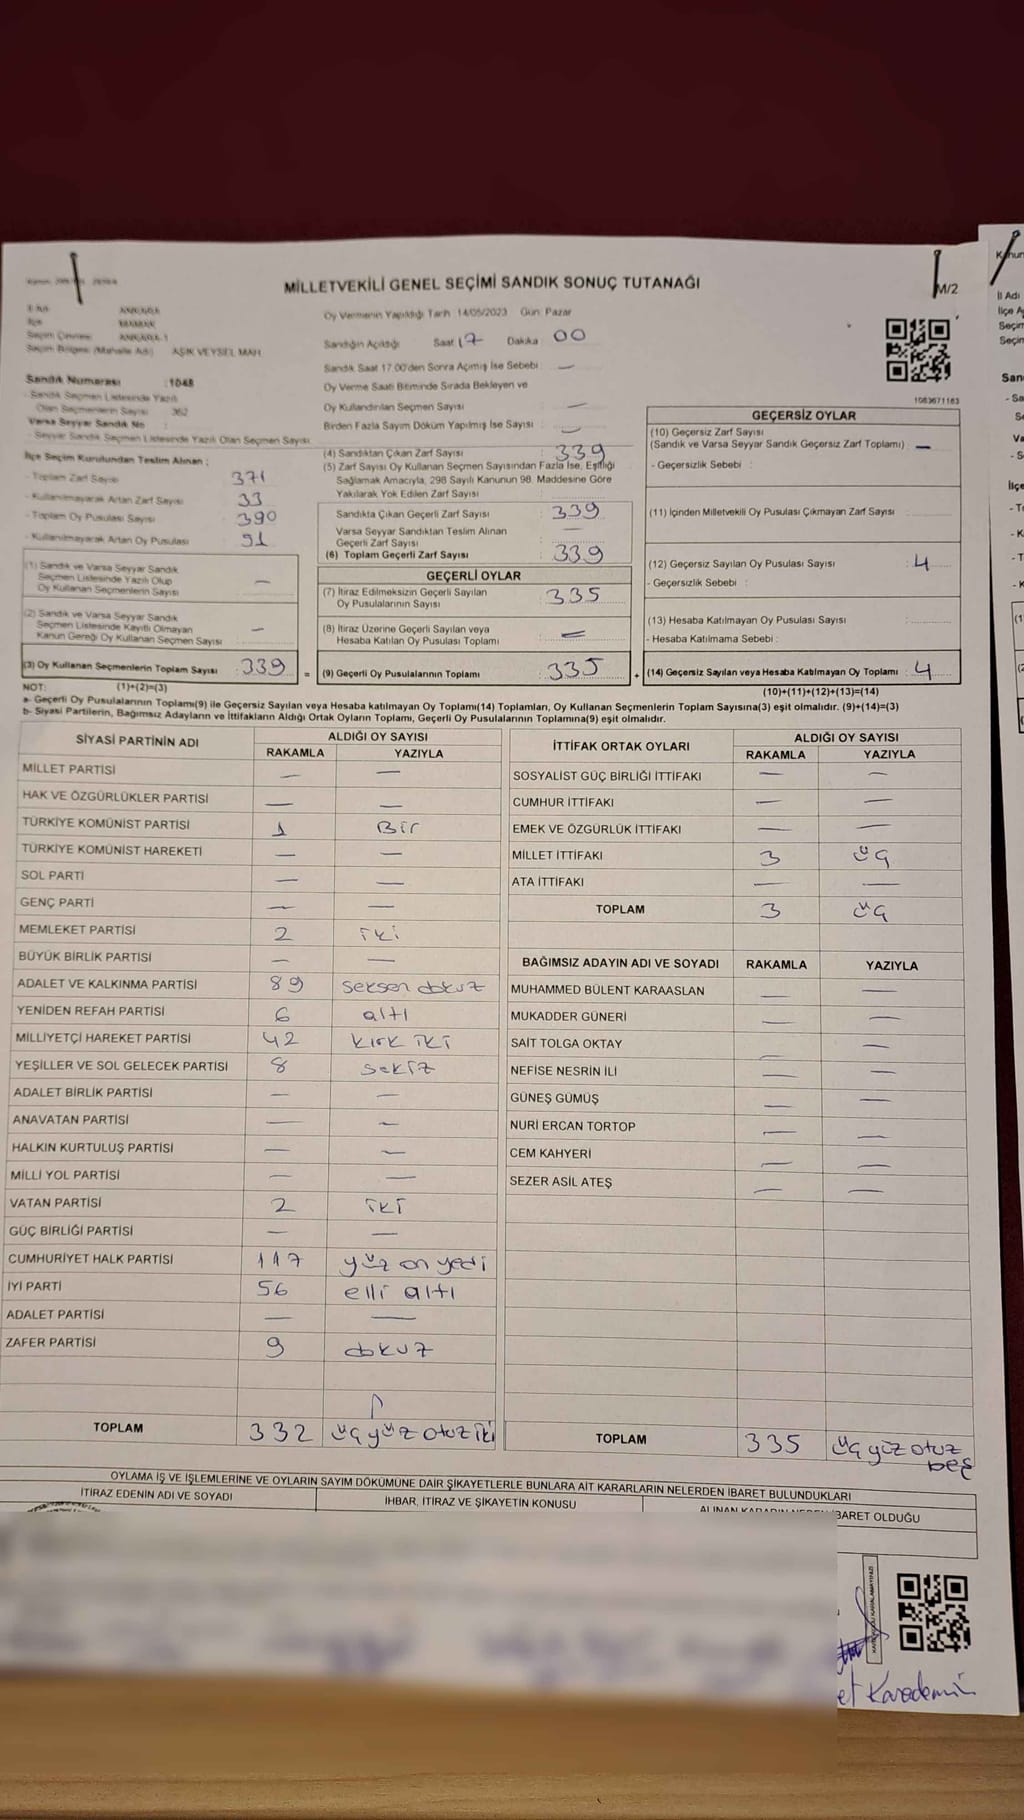 MİLLETVEKİLİ GENEL SEÇİMİ SANDIK SONUÇ TUTANAĞI
M/2
İlçe
Seçim Çevresi ANKARA 1
Seçim Bölgesi (Mahalle Adı) : AŞIK VEYSEL MAH.
Sandık Numarası : 1048
- Sandık Seçmen Listesinde Yazılı
Olan Seçmenlerin Sayısı 362
Varsa Seyyar Sandık No :
- Seyyar Sandık Seçmen Listesinde Yazılı Olan Seçmen Sayısı:
İlçe Seçim Kurulundan Teslim Alınan :
- Toplam Zarf Sayısı 371
- Kullanılmayarak Artan Zarf Sayısı 33
- Toplam Oy Pusulası Sayısı 390
- Kullanılmayarak Artan Oy Pusulası 91
(1) Sandık ve Varsa Seyyar Sandık
Seçmen Listesinde Yazılı Olup
Oy Kullanan Seçmenlerin Sayısı : —
(2) Sandık ve Varsa Seyyar Sandık
Seçmen Listesinde Kayıtlı Olmayan
Kanun Gereği Oy Kullanan Seçmen Sayısı : —
(3) Oy Kullanan Seçmenlerin Toplam Sayısı : 339
Oy Vermenin Yapıldığı Tarih: 14/05/2023 Gün: Pazar
Sandığın Açıldığı Saat 17 Dakika 00
Sandık Saat 17.00'den Sonra Açılmış İse Sebebi : —
Oy Verme Saati Bitiminde Sırada Bekleyen ve
Oy Kullandırılan Seçmen Sayısı : —
Birden Fazla Sayım Döküm Yapılmış İse Sayısı : —
(4) Sandıktan Çıkan Zarf Sayısı : 339
(5) Zarf Sayısı Oy Kullanan Seçmen Sayısından Fazla İse, Eşitliği
Sağlamak Amacıyla, 298 Sayılı Kanunun 98. Maddesine Göre
Yakılarak Yok Edilen Zarf Sayısı :
Sandıkta Çıkan Geçerli Zarf Sayısı : 339
Varsa Seyyar Sandıktan Teslim Alınan
Geçerli Zarf Sayısı : —
(6) Toplam Geçerli Zarf Sayısı : 339
GEÇERLİ OYLAR
(7) İtiraz Edilmeksizin Geçerli Sayılan
Oy Pusulalarının Sayısı : 335
(8) İtiraz Üzerine Geçerli Sayılan veya
Hesaba Katılan Oy Pusulası Toplamı : —
= (9) Geçerli Oy Pusulalarının Toplamı : 335
1083671163
GEÇERSİZ OYLAR
(10) Geçersiz Zarf Sayısı
(Sandık ve Varsa Seyyar Sandık Geçersiz Zarf Toplamı) : —
- Geçersizlik Sebebi :
(11) İçinden Milletvekili Oy Pusulası Çıkmayan Zarf Sayısı :
(12) Geçersiz Sayılan Oy Pusulası Sayısı : 4
- Geçersizlik Sebebi :
(13) Hesaba Katılmayan Oy Pusulası Sayısı :
- Hesaba Katılmama Sebebi :
+ (14) Geçersiz Sayılan veya Hesaba Katılmayan Oy Toplamı : 4
NOT: (1)+(2)=(3) (10)+(11)+(12)+(13)=(14)
a- Geçerli Oy Pusulalarının Toplamı(9) ile Geçersiz Sayılan veya Hesaba katılmayan Oy Toplamı(14) Toplamları, Oy Kullanan Seçmenlerin Toplam Sayısına(3) eşit olmalıdır. (9)+(14)=(3)
b- Siyasi Partilerin, Bağımsız Adayların ve İttifakların Aldığı Ortak Oyların Toplamı, Geçerli Oy Pusulalarının Toplamına(9) eşit olmalıdır.
SİYASİ PARTİNİN ADI ALDIĞI OY SAYISI
RAKAMLA YAZIYLA
MİLLET PARTİSİ — —
HAK VE ÖZGÜRLÜKLER PARTİSİ — —
TÜRKİYE KOMÜNİST PARTİSİ 1 Bir
TÜRKİYE KOMÜNİST HAREKETİ — —
SOL PARTİ — —
GENÇ PARTİ — —
MEMLEKET PARTİSİ 2 iki
BÜYÜK BİRLİK PARTİSİ — —
ADALET VE KALKINMA PARTİSİ 89 seksen dokuz
YENİDEN REFAH PARTİSİ 6 altı
MİLLİYETÇİ HAREKET PARTİSİ 42 kırk iki
YEŞİLLER VE SOL GELECEK PARTİSİ 8 sekiz
ADALET BİRLİK PARTİSİ — —
ANAVATAN PARTİSİ — —
HALKIN KURTULUŞ PARTİSİ — —
MİLLİ YOL PARTİSİ — —
VATAN PARTİSİ 2 iki
GÜÇ BİRLİĞİ PARTİSİ — —
CUMHURİYET HALK PARTİSİ 117 yüz on yedi
İYİ PARTİ 56 elli altı
ADALET PARTİSİ — —
ZAFER PARTİSİ 9 dokuz
TOPLAM 332 üç yüz otuz iki
İTTİFAK ORTAK OYLARI ALDIĞI OY SAYISI
RAKAMLA YAZIYLA
SOSYALİST GÜÇ BİRLİĞİ İTTİFAKI — —
CUMHUR İTTİFAKI — —
EMEK VE ÖZGÜRLÜK İTTİFAKI — —
MİLLET İTTİFAKI 3 üç
ATA İTTİFAKI — —
TOPLAM 3 üç
BAĞIMSIZ ADAYIN ADI VE SOYADI RAKAMLA YAZIYLA
MUHAMMED BÜLENT KARAASLAN — —
MUKADDER GÜNERİ — —
SAİT TOLGA OKTAY — —
NEFİSE NESRİN İLİ — —
GÜNEŞ GÜMÜŞ — —
NURİ ERCAN TORTOP — —
CEM KAHYERİ — —
SEZER ASİL ATEŞ — —
TOPLAM 335 üç yüz otuz beş
OYLAMA İŞ VE İŞLEMLERİNE VE OYLARIN SAYIM DÖKÜMÜNE DAİR ŞİKAYETLERLE BUNLARA AİT KARARLARIN NELERDEN İBARET BULUNDUKLARI
İTİRAZ EDENİN ADI VE SOYADI İHBAR, İTİRAZ VE ŞİKAYETİN KONUSU ALINAN KARARIN NEDEN İBARET OLDUĞU
et Karademir
İl Adı
İlçe A
Seçim
Seçim
San